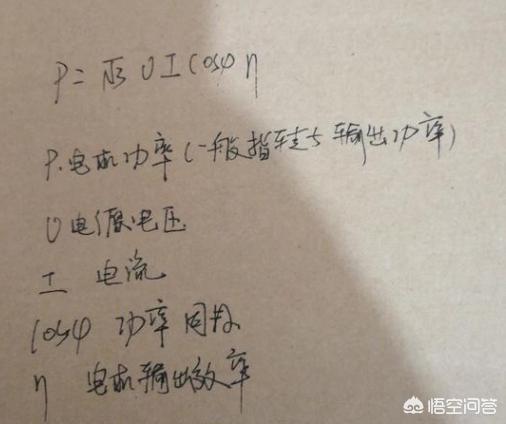 P=√3 UI cosφ η
P.电机功率(一般指轴输出功率)
U电源电压
I 电流
cosφ 功率因数
η 电机输出效率
悟空问答